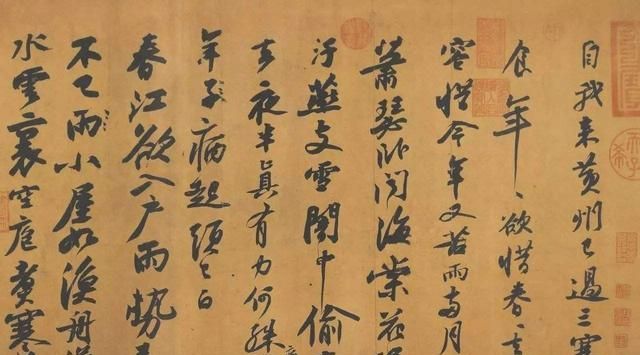 自我来黄州已過三寒
食年々欲惜春々去
容惜今年又苦雨兩月
蕭瑟卧聞海棠花
汙燕支雪闇中偷
去夜半真有力何殊
年子病起頭已白
春江欲入戶雨勢
不已雨小屋如漁舟
水雲裏空庖煮寒